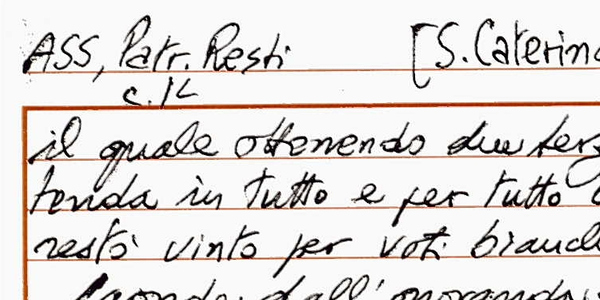 ASS, Patr. Resti [S. Caterina
c. 12
il quale ottenendo due terz
tenda in tutto e per tutto
restò vinto per voti bianch
dall'onorando